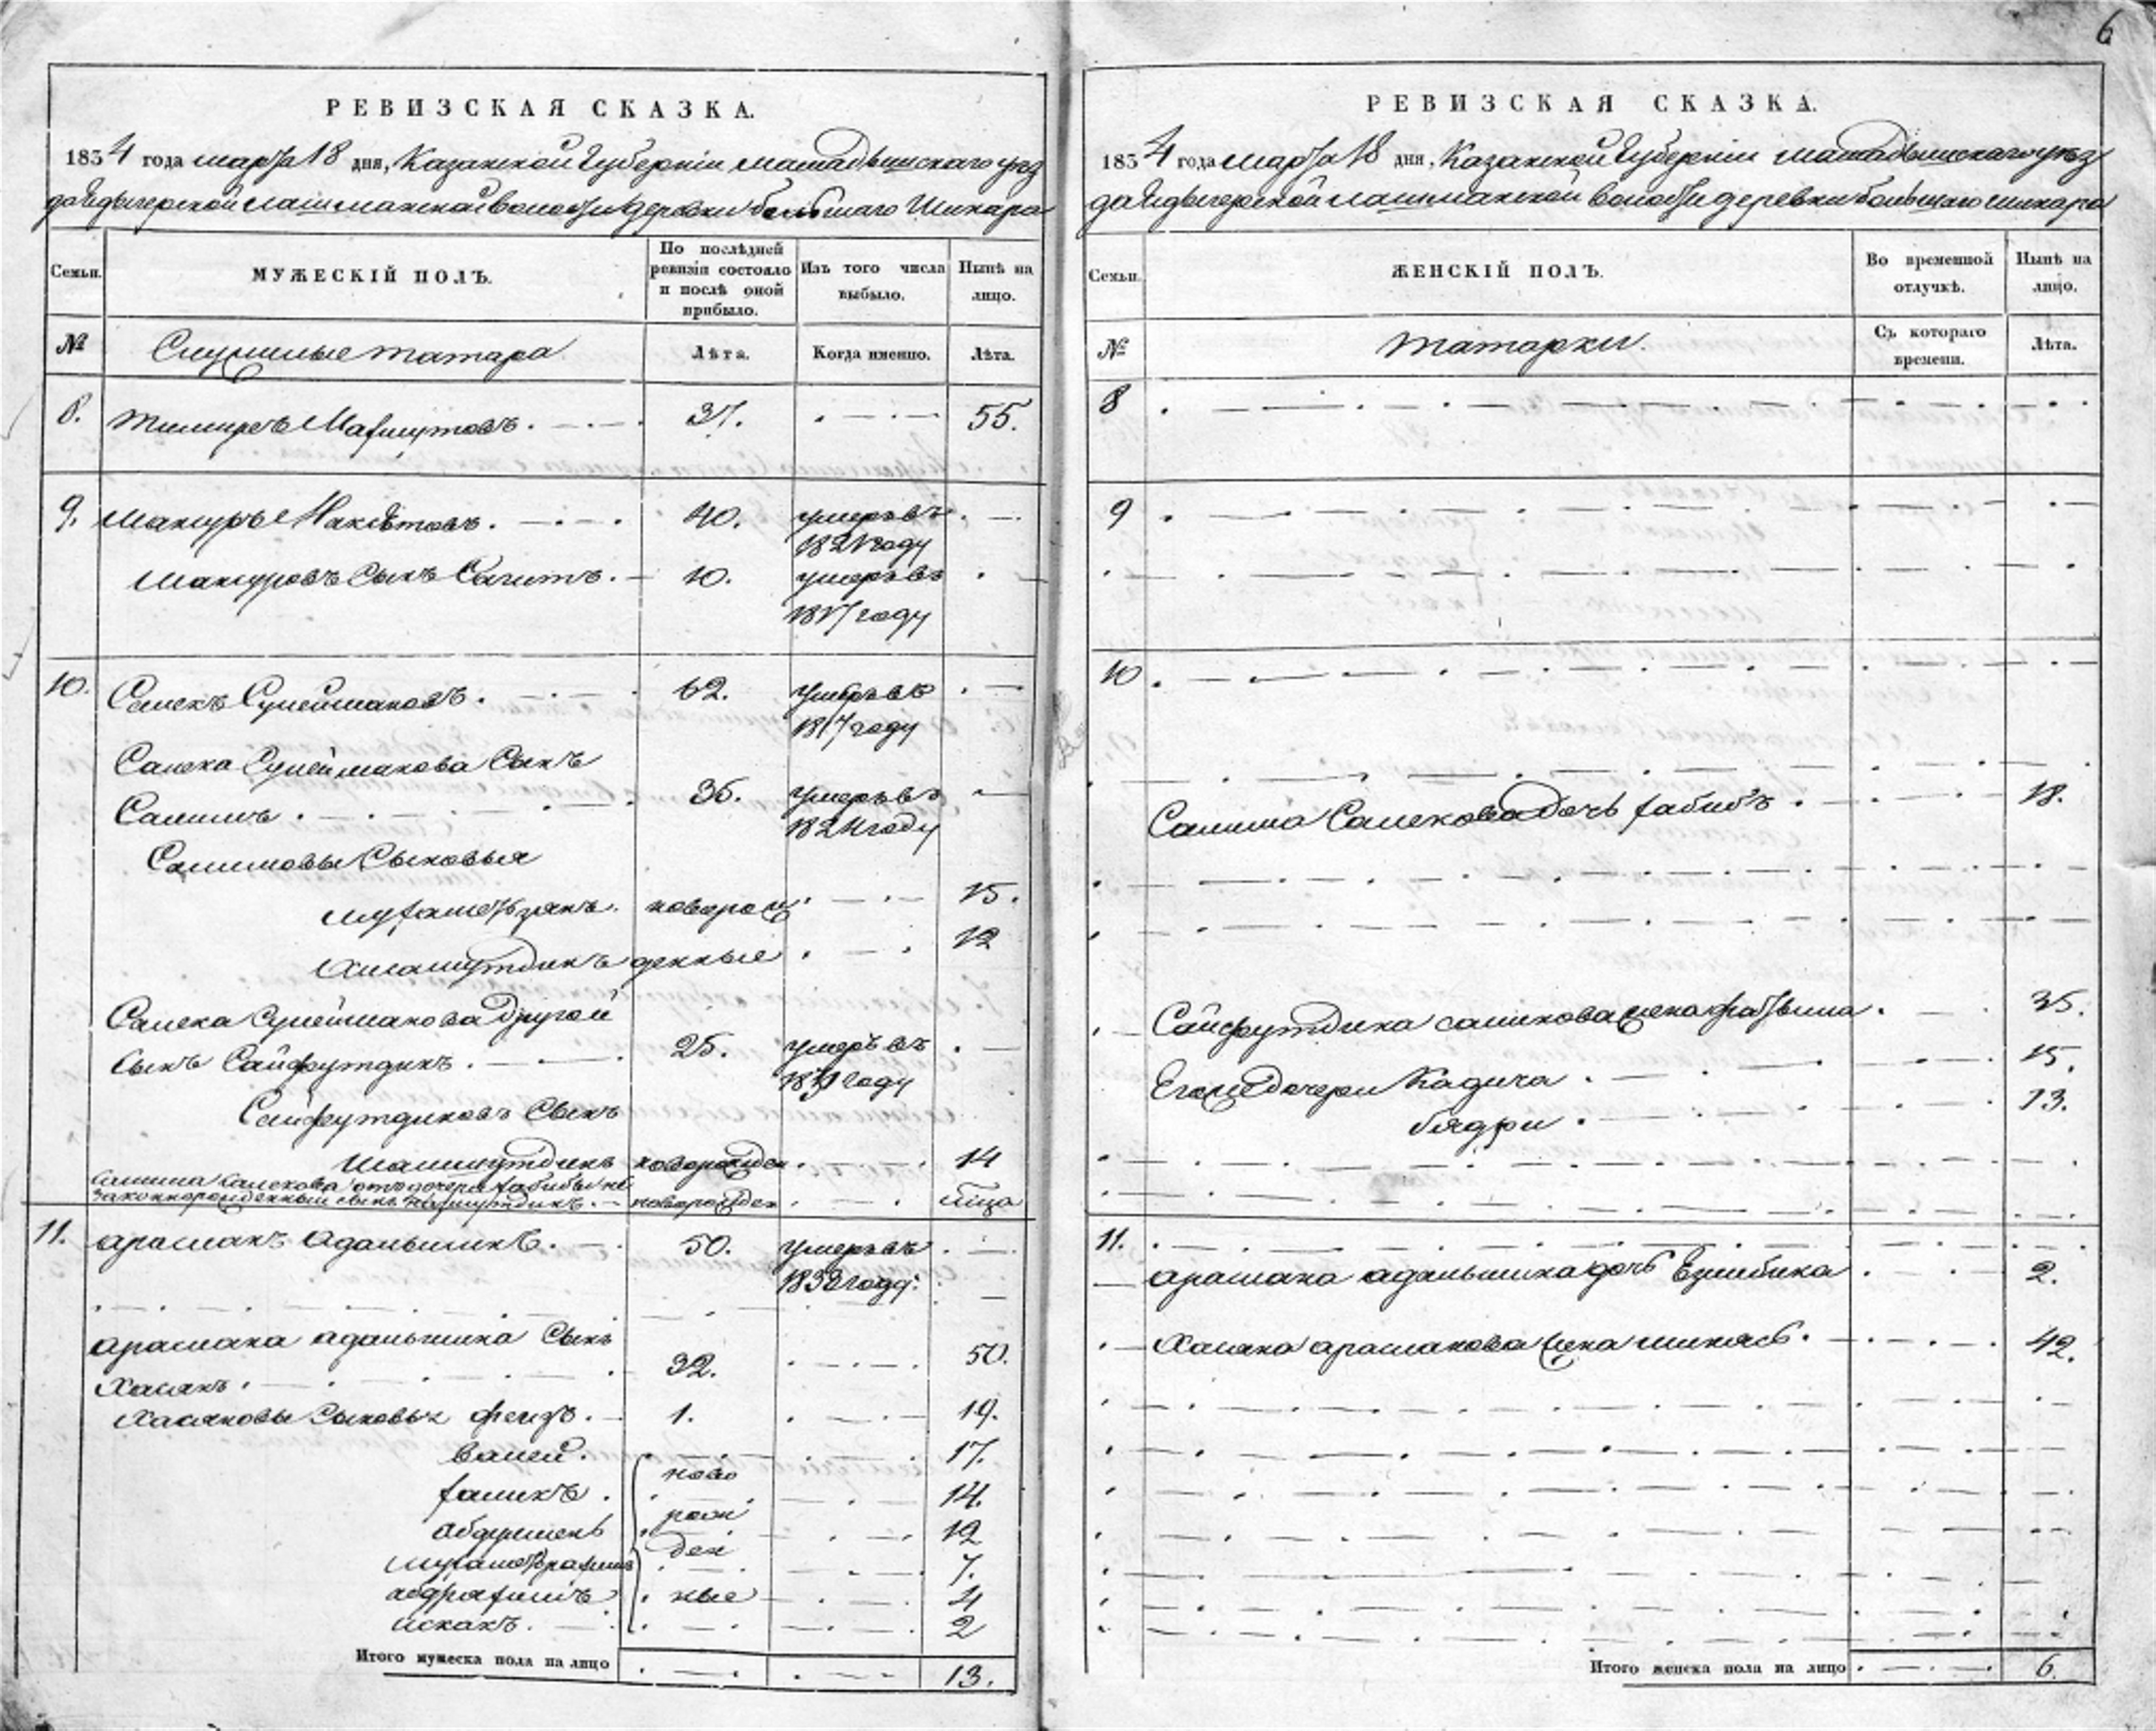 6
РЕВИЗСКАЯ СКАЗКА.
1834 года марта 18 дня, Казанской Губерніи Мамадышскаго уез
да Ядыгерской лашманской волости деревни большаго Шинара
Семьи.
МУЖЕСКІЙ ПОЛЪ.
По послѣдней ревизіи состояло и послѣ оной прибыло.
Изъ того числа выбыло.
Нынѣ на лицо.
№
Служилые татара
Лѣта.
Когда именно.
Лѣта.
8. 37. 55.
9. Мансуръ 40. умеръ въ
1821 году
Мансуровъ Сынъ Сагитъ. 10. умеръ въ
1817 году
10. Салекъ Сулеймановъ. 62. умеръ въ
1817 году
Салека Сулейманова Сынъ
Салимъ. 36. умеръ въ
году
Салимовы Сыновья
новорож 15.
денные 12
Салека Сулейманова другой
сынъ Сайфутдинъ. 25. умеръ въ
году
Сайфутдиновъ Сынъ
Шамсутдинъ новорожден 14
Салима Салекова отъ дочери Хабибы не
законнорожденный сынъ новорожден
11. Арасланъ 50. умеръ въ
году.
Араслана Сынъ
Хасянъ. 32. 50.
Хасяновы Сыновья Феизъ. 1. 19.
Валей. ново 17.
Халикъ. рож 14.
ден 12
7.
ные 4
Искакъ. 2
Итого мужеска пола на лицо 13.
РЕВИЗСКАЯ СКАЗКА.
1834 года Марта 18 дня, Казанской Губерніи Мамадышскаго уез
да Ядыгерской лашманской волости деревни большаго шинара
Семьи.
ЖЕНСКІЙ ПОЛЪ.
Во временной отлучкѣ.
Нынѣ на лицо.
№
татарки.
Съ котораго времени.
Лѣта.
8
9
10
Салима Салекова дочь Хабибъ. 18.
Сайфутдина жена 35.
Его же дочери Кадича 15.
Бядри. 13.
11.
Араслана дочь 2.
Хасяна Арасланова жена 42.
Итого женска пола на лицо 6.